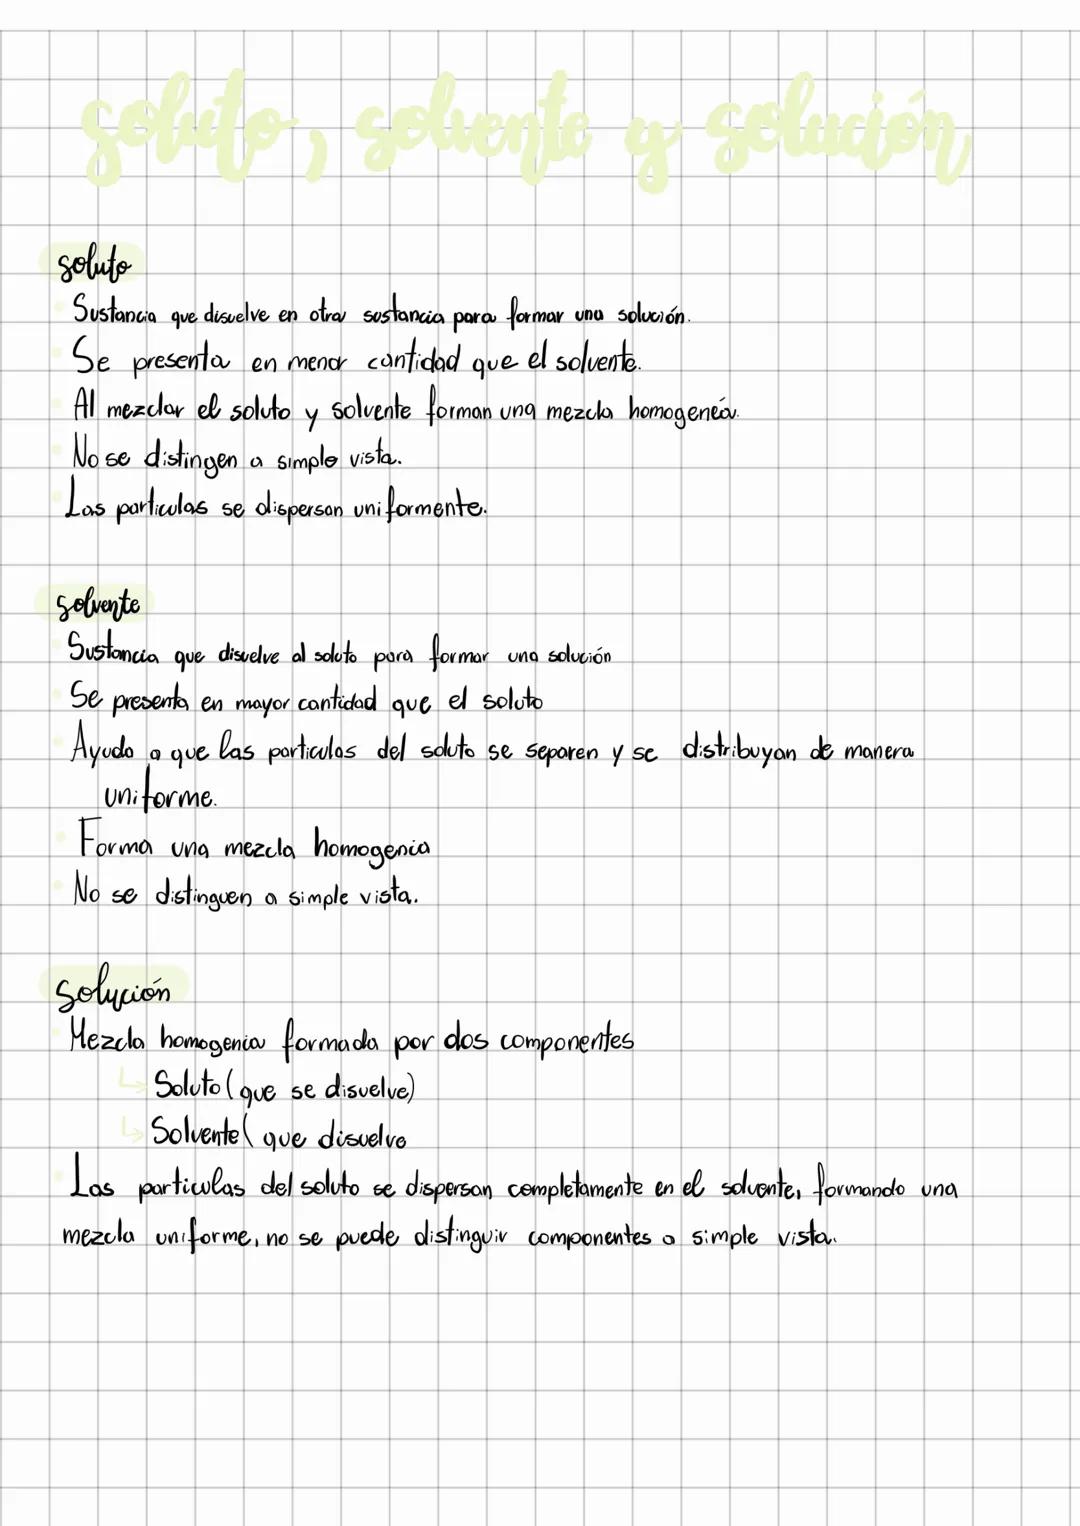 soluto, solvente y solución
soluto
Sustancia que disuelve en otra sustancia para formar una solución.
Se presenta en menor cantidad que el solvente.
Al mezclar el soluto y solvente forman una mezcla homogenéa.
No se distingen a simple vista.
Las particulas se dispersan uniformente.
solvente
Sustancia que disuelve al soluto para formar una solución
Se presenta en mayor cantidad que el soluto
Ayuda a que las particulas del soluto se separen y se distribuyan de manera
uniforme.
Forma una mezcla homogenia
No se distinguen a simple vista.
Solución
Mezcla homogenia formada por dos componentes
↳ Soluto (que se disuelve)
↳ Solvente( que disuelve
Las particulas del soluto se dispersan completamente en el solvente, formando una
mezcla uniforme, no se puede distinguir componentes a simple vista.